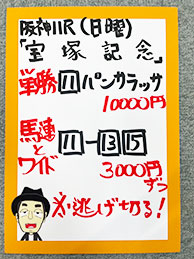 阪神11R(日曜)
「宝塚記念」
単勝 11 パンサラッサ
10000円
馬連とワイド 11-13 15
3000円ずつ
逃げ切る!